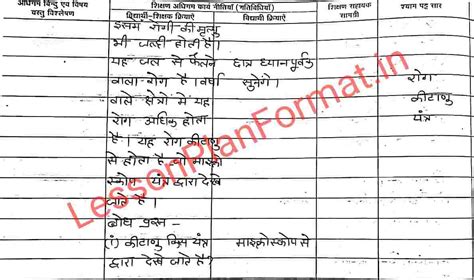 अधिगम बिन्दु एवं विषय वस्तु विश्लेषण
शिक्षण अधिगम कार्य नीतियाँ (गतिविधियाँ)
विद्यार्थी-शिक्षक क्रियाएँ
विद्यार्थी क्रियाएँ
शिक्षण सहायक सामग्री
श्याम पट्ट सार
इसमें रोगी की मृत्यु
भी जल्दी होती है।
यह जल से फैलने छात्र ध्यानपूर्वक
वाला रोग है। वर्षा सुनेंगे। रोग
वाले क्षेत्रों में यह कीटाणु
रोग अधिक होता यंत्र
है। यह रोग कीटाणु
से होता है जो माइक्रो
स्कोप यंत्र द्वारा देखे
जाते है।
बोध प्रश्न -
(i) कीटाणु किस यंत्र माइक्रोस्कोप से
द्वारा देखे जाते है?
LessonPlanFormat.in